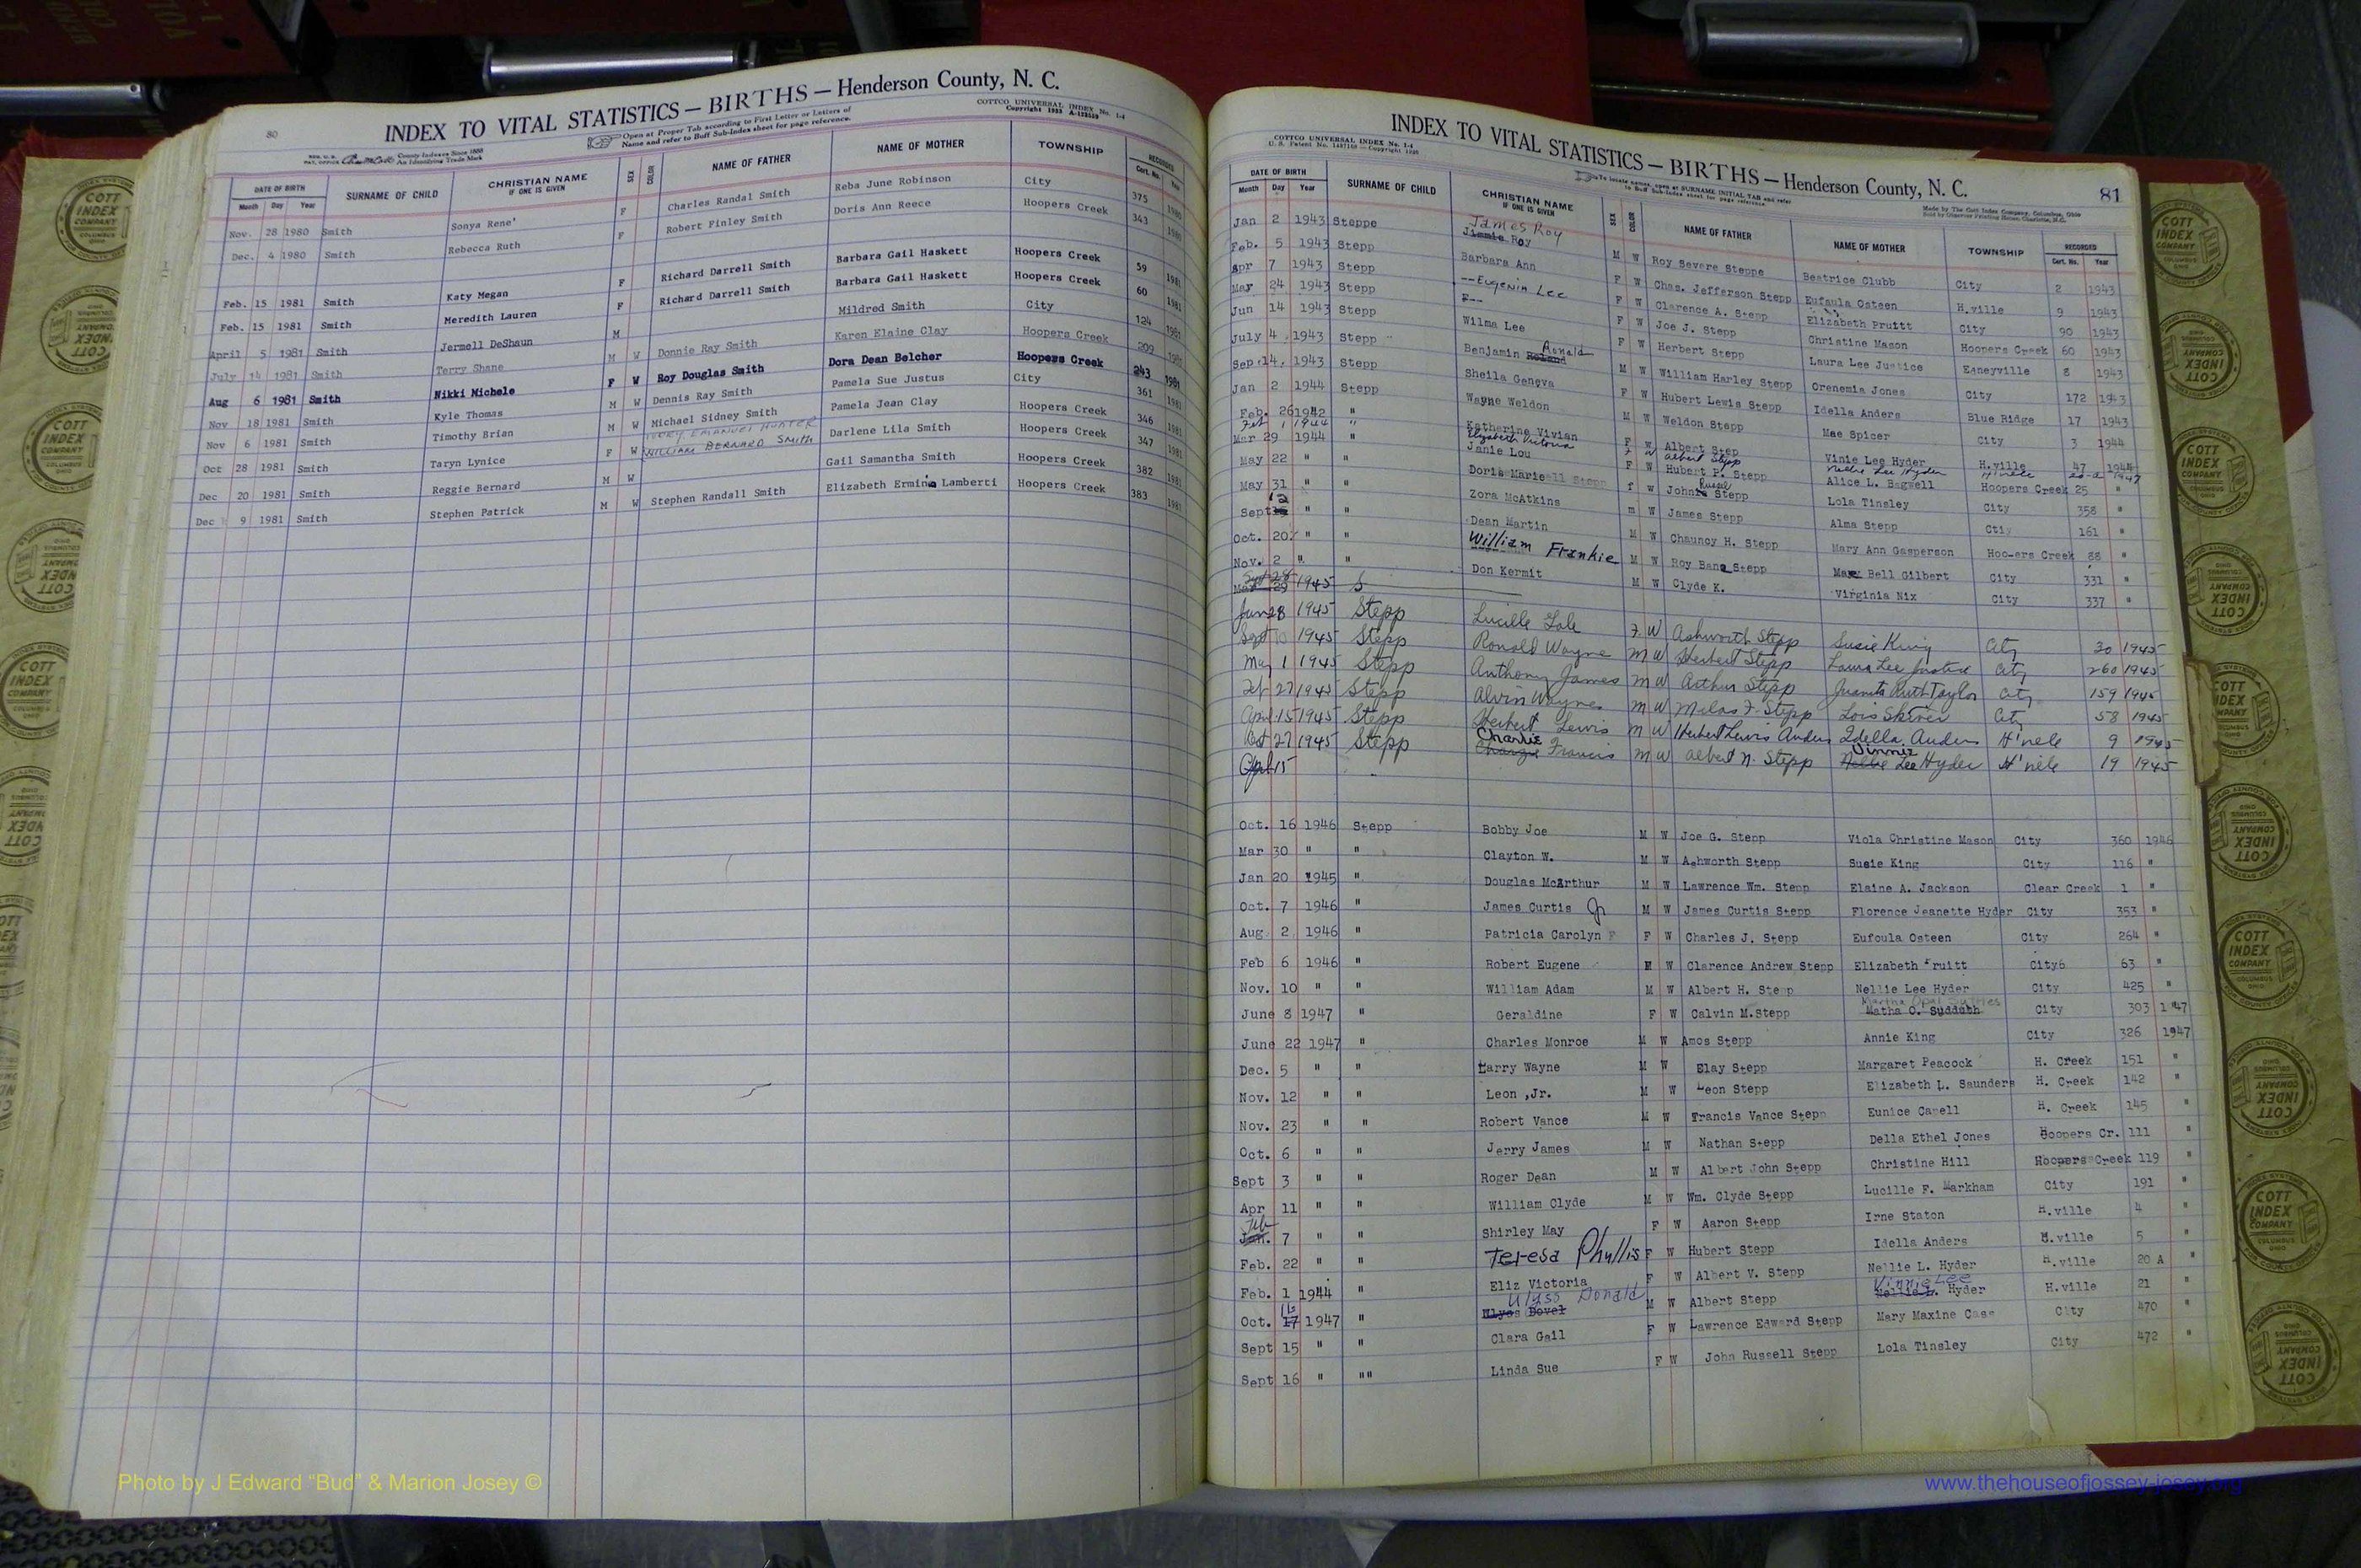 80
INDEX TO VITAL STATISTICS — BIRTHS — Henderson County, N. C.
Open at Proper Tab according to First Letter or Letters of
Name and refer to Buff Sub-Index sheet for page reference.
COTTCO UNIVERSAL INDEX No. 1-4
County Indexes Since 1888
An Identifying Trade Mark
DATE OF BIRTH Month Day Year SURNAME OF CHILD CHRISTIAN NAME IF ONE IS GIVEN SEX COLOR NAME OF FATHER NAME OF MOTHER TOWNSHIP RECORDED Cert. No. Year
Nov. 28 1980 Smith Sonya Rene' F Charles Randal Smith Reba June Robinson City 375 1980
Dec. 4 1980 Smith Rebecca Ruth F Robert Finley Smith Doris Ann Reece Hoopers Creek 343 1980
Feb. 15 1981 Smith Katy Megan F Richard Darrell Smith Barbara Gail Haskett Hoopers Creek 59 1981
Feb. 15 1981 Smith Meredith Lauren F Richard Darrell Smith Barbara Gail Haskett Hoopers Creek 60 1981
April 5 1981 Smith Jermell DeShaun M Mildred Smith City 124 1981
July 14 1981 Smith Terry Shane M W Donnie Ray Smith Karen Elaine Clay Hoopers Creek 209 1981
Aug 6 1981 Smith Nikki Michele F W Roy Douglas Smith Dora Dean Belcher Hoopers Creek 243 1981
Nov 18 1981 Smith Kyle Thomas M W Dennis Ray Smith Pamela Sue Justus City 361 1981
Nov 6 1981 Smith Timothy Brian M W Michael Sidney Smith Pamela Jean Clay Hoopers Creek 346 1981
Oct 28 1981 Smith Taryn Lynice F W TERRY EMANUEL HUNTER Darlene Lila Smith Hoopers Creek 347 1981
Dec 20 1981 Smith Reggie Bernard M W WILLIAM BERNARD SMITH Gail Samantha Smith Hoopers Creek 382 1981
Dec 9 1981 Smith Stephen Patrick M W Stephen Randall Smith Elizabeth Ermina Lamberti Hoopers Creek 383 1981
81
INDEX TO VITAL STATISTICS — BIRTHS — Henderson County, N. C.
COTTCO UNIVERSAL INDEX No. 1-4
To locate names, open at SURNAME INITIAL TAB and refer
to Buff Sub-Index sheet for page reference.
Made by The Cott Index Company, Columbus, Ohio
Sold by Observer Printing House, Charlotte, N.C.
DATE OF BIRTH Month Day Year SURNAME OF CHILD CHRISTIAN NAME IF ONE IS GIVEN SEX COLOR NAME OF FATHER NAME OF MOTHER TOWNSHIP RECORDED Cert. No. Year
James Roy
Jan 2 1943 Steppe Jimmie Roy M W Roy Severe Steppe Beatrice Clubb City 2 1943
Feb. 5 1943 Stepp Barbara Ann F W Chas. Jefferson Stepp Eufaula Osteen H.ville 9 1943
Apr 7 1943 Stepp --Eugenia Lee F W Clarence A. Stepp Elizabeth Pruitt City 90 1943
May 24 1943 Stepp F-- F W Joe J. Stepp Christine Mason Hoopers Creek 60 1943
Jun 14 1943 Stepp Wilma Lee F W Herbert Stepp Laura Lee Justice Edneyville 8 1943
July 4 1943 Stepp Benjamin Roland Ronald M W William Harley Stepp Orenemia Jones City 172 1943
Sep 14 1943 Stepp Sheila Geneva F W Hubert Lewis Stepp Idella Anders Blue Ridge 17 1943
Jan 2 1944 Stepp Wayne Weldon M W Weldon Stepp Mae Spicer City 3 1944
Feb. 26 1942 " Katherine Vivian F W Albert Step Vinie Lee Hyder H.ville 47 1944
Feb 1 1944 " Elizabeth Victoria F W Albert Stepp Nellie Lee Hyder 1947
Mar 29 1944 Janie Lou F W Hubert P. Stepp Alice L. Bagwell Hoopers Creek 25 "
May 22 " " Doris Mariell Stepp f W Johnie Stepp Lola Tinsley City 358 "
May 31 " " Zora McAtkins m W James Stepp Alma Stepp Ctiy 161 "
Sept 12 " " Dean Martin M W Chauncy H. Stepp Mary Ann Gasperson Hoo-ers Creek 88 "
Oct. 20 " " William Frankie M W Roy Bane Stepp Mary Bell Gilbert City 331 "
Nov. 2 " " Don Kermit M W Clyde K. Virginia Nix City 337 "
1945 S
Jan 28 1945 Stepp Lucille Lole F. W Ashworth Stepp Susie King City 30 1945
Sept 10 1945 Stepp Ronald Wayne m W Herbert Stepp Laura Lee Justice City 260 1945
May 1 1945 Stepp Anthony James m W Arthur Stepp Juanita Ruth Taylor City 159 1945
Feb 27 1945 Stepp Alvin Wayne m W Milas F. Stepp Lois City 58 1945
April 15 1945 Stepp Herbert Lewis m W Hubert Lewis Anders Idella Anders H'ville 9 1945
Oct 27 1945 Stepp Charlie Francis m W Albert N. Stepp Vinnie Nellie Lee Hyder H'ville 19 1945
April 15
Oct. 16 1946 Stepp Bobby Joe M W Joe G. Stepp Viola Christine Mason City 360 1946
Mar 30 " " Clayton W. M W Ashworth Stepp Susie King City 116 "
Jan 20 1945 " Douglas McArthur M W Lawrence Wm. Stepp Elaine A. Jackson Clear Creek 1 "
Oct. 7 1946 " James Curtis Jr M W James Curtis Stepp Florence Jeanette Hyder City 353 "
Aug 2 1946 " Patricia Carolyn F F W Charles J. Stepp Eufoula Osteen City 264 "
Feb 6 1946 " Robert Eugene M W Clarence Andrew Stepp Elizabeth Pruitt City6 63 "
Nov. 10 " " William Adam M W Albert H. Stepp Nellie Lee Hyder City 425 "
Martha Opal
June 8 1947 " Geraldine F W Calvin M.Stepp Matha O. Suddubh City 303 1947
June 22 1947 " Charles Monroe M W Amos Stepp Annie King City 326 1947
Dec. 5 " " Larry Wayne M W Elay Stepp Margaret Peacock H. Creek 151 "
Nov. 12 " " Leon ,Jr. M W Leon Stepp Elizabeth L. Saunders H. Creek 142 "
Nov. 23 " " Robert Vance M W Francis Vance Stepp Eunice Capell H. Creek 145 "
Oct. 6 " " Jerry James M W Nathan Stepp Della Ethel Jones Hoopers Cr. 111 "
Sept 3 " " Roger Dean M W Albert John Stepp Christine Hill Hoopers Creek 119 "
Apr 11 " " William Clyde M W Wm. Clyde Stepp Lucille F. Markham City 191 "
Feb
Jan. 7 " " Shirley May F W Aaron Stepp Irne Staton H.ville 4 "
Feb. 22 " " Teresa Phyllis F W Hubert Stepp Idella Anders H.ville 5 "
Feb. 1 1944 " Eliz Victoria F W Albert V. Stepp Nellie L. Hyder H.ville 20 A "
Ulyss Donald Vinnie Lee
Oct. 17 1947 " Ulyss Dovel M W Albert Stepp Nellie L. Hyder H.ville 21 "
Sept 15 " " Clara Gail F W Lawrence Edward Stepp Mary Maxine Case City 470 "
Sept 16 " "" Linda Sue F W John Russell Stepp Lola Tinsley City 472 "
Photo by J Edward “Bud” & Marion Josey ©
www.thehouseofjossey-josey.org